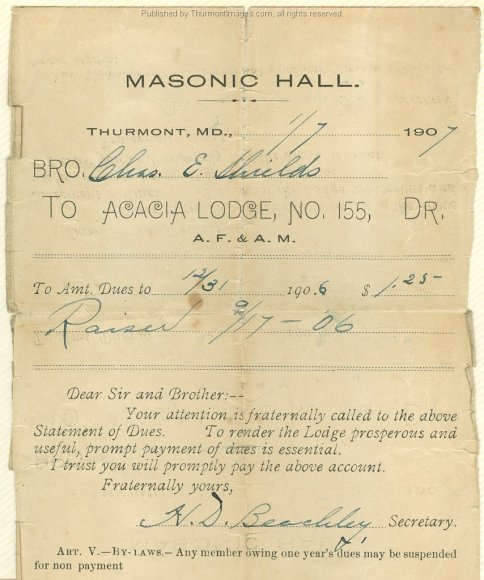 Published by ThurmontImages.com, all rights reserved
MASONIC HALL.
THURMONT, MD., 1/7 1907
BRO. Chas. E. Shields
TO ACACIA LODGE, NO. 155, DR.
A. F. & A. M.
To Amt. Dues to 12/31 1906 $ 1.25
Raised 9/17-'06
Dear Sir and Brother:--
Your attention is fraternally called to the above
Statement of Dues. To render the Lodge prosperous and
useful, prompt payment of dues is essential.
I trust you will promptly pay the above account.
Fraternally yours,
H. D. Beachley Secretary.
ART. V.—BY-LAWS.—Any member owing one year's dues may be suspended
for non payment